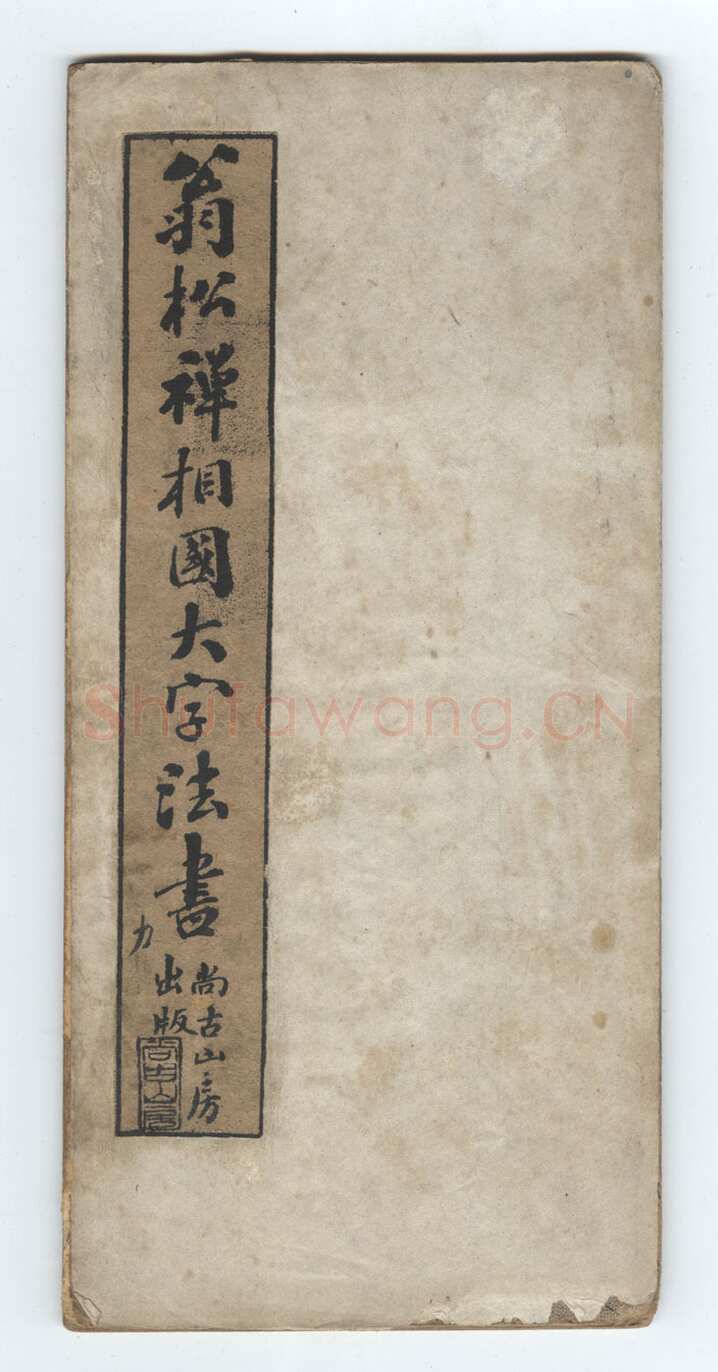 翁松禅相國大字法書
尚古山房
出版
力
尚古山房
Shufawang.CN